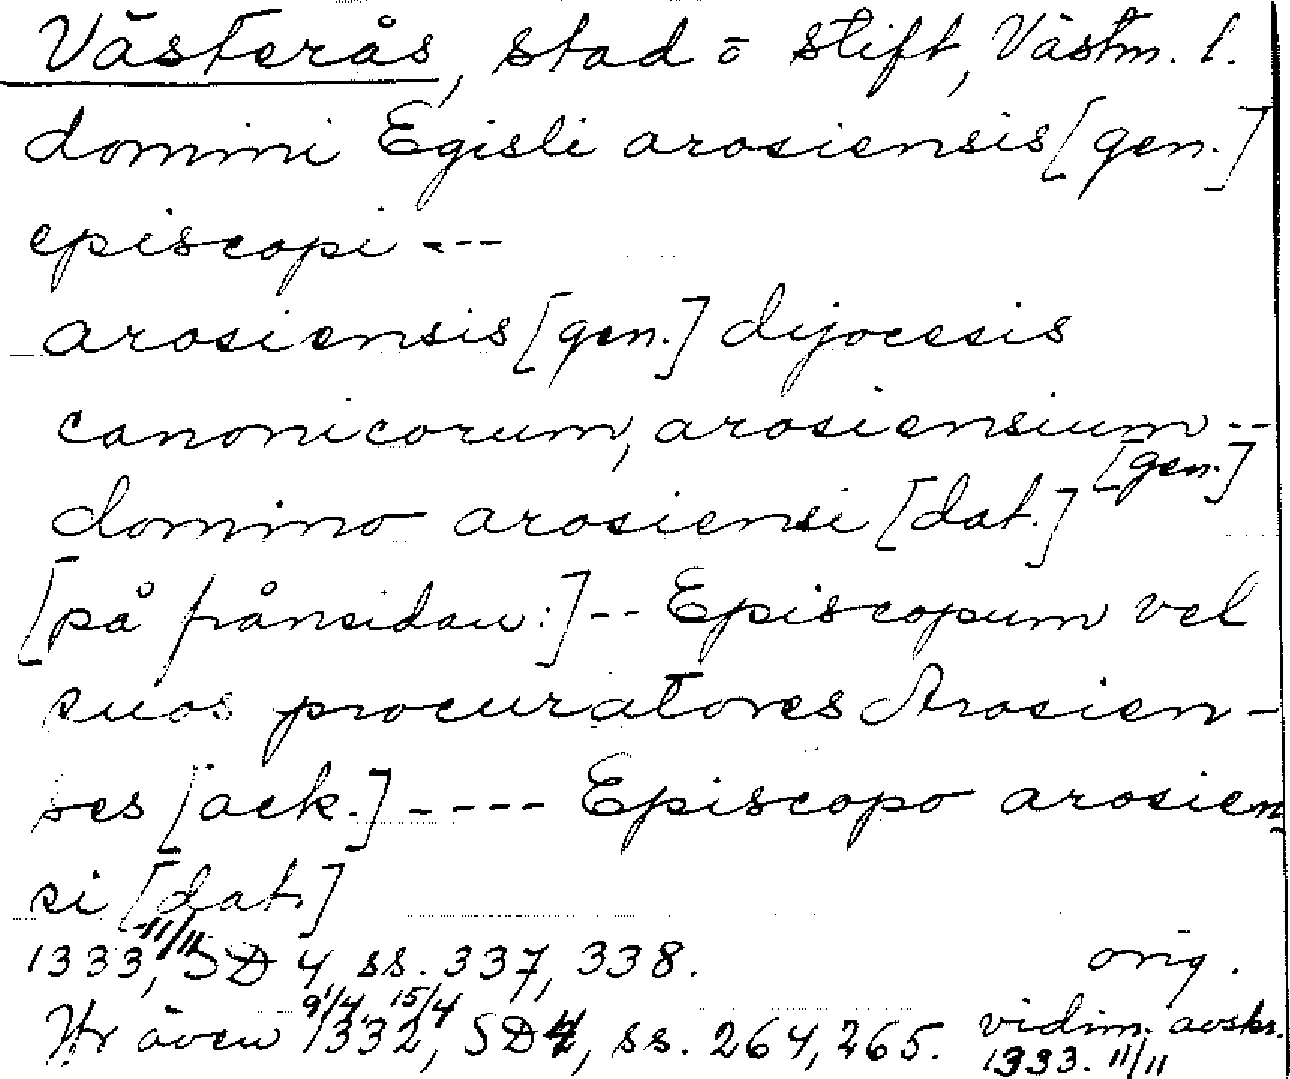 Västerås, stad o stift, Västm. l.
domini Egisli arosiensis [gen.]
episcopi ---
arosiensis [gen.] dijocesis
canonicorum, arosiensium --
[gen.]
domino arosiensi [dat.]
[på frånsidan:] -- Episcopum vel
suos procuratores Arosien-
ses [ack.] ---- Episcopo arosien
si [dat.]
1333, 11/11 SD 4, ss. 337, 338. orig.
även 9/4, 15/4 1332, SD 4, ss. 264, 265. vidim. avskr.
1333. 11/11